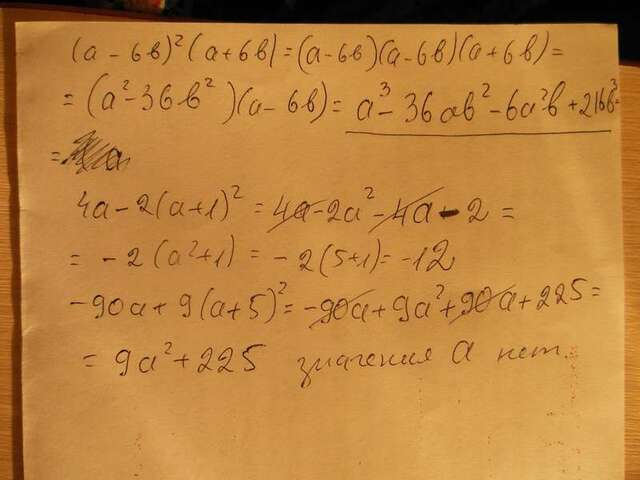 (a - 6b)² (a + 6b) = (a - 6b)(a - 6b)(a + 6b) =
= (a² - 36b²)(a - 6b) = a³ - 36ab² - 6a²b + 216b³
= a
4a - 2(a+1)² = 4a - 2a² - 4a - 2 =
= -2(a²+1) = -2(5+1) = -12
-90a + 9(a+5)² = -90a + 9a² + 90a + 225 =
= 9a² + 225 значения a нет.